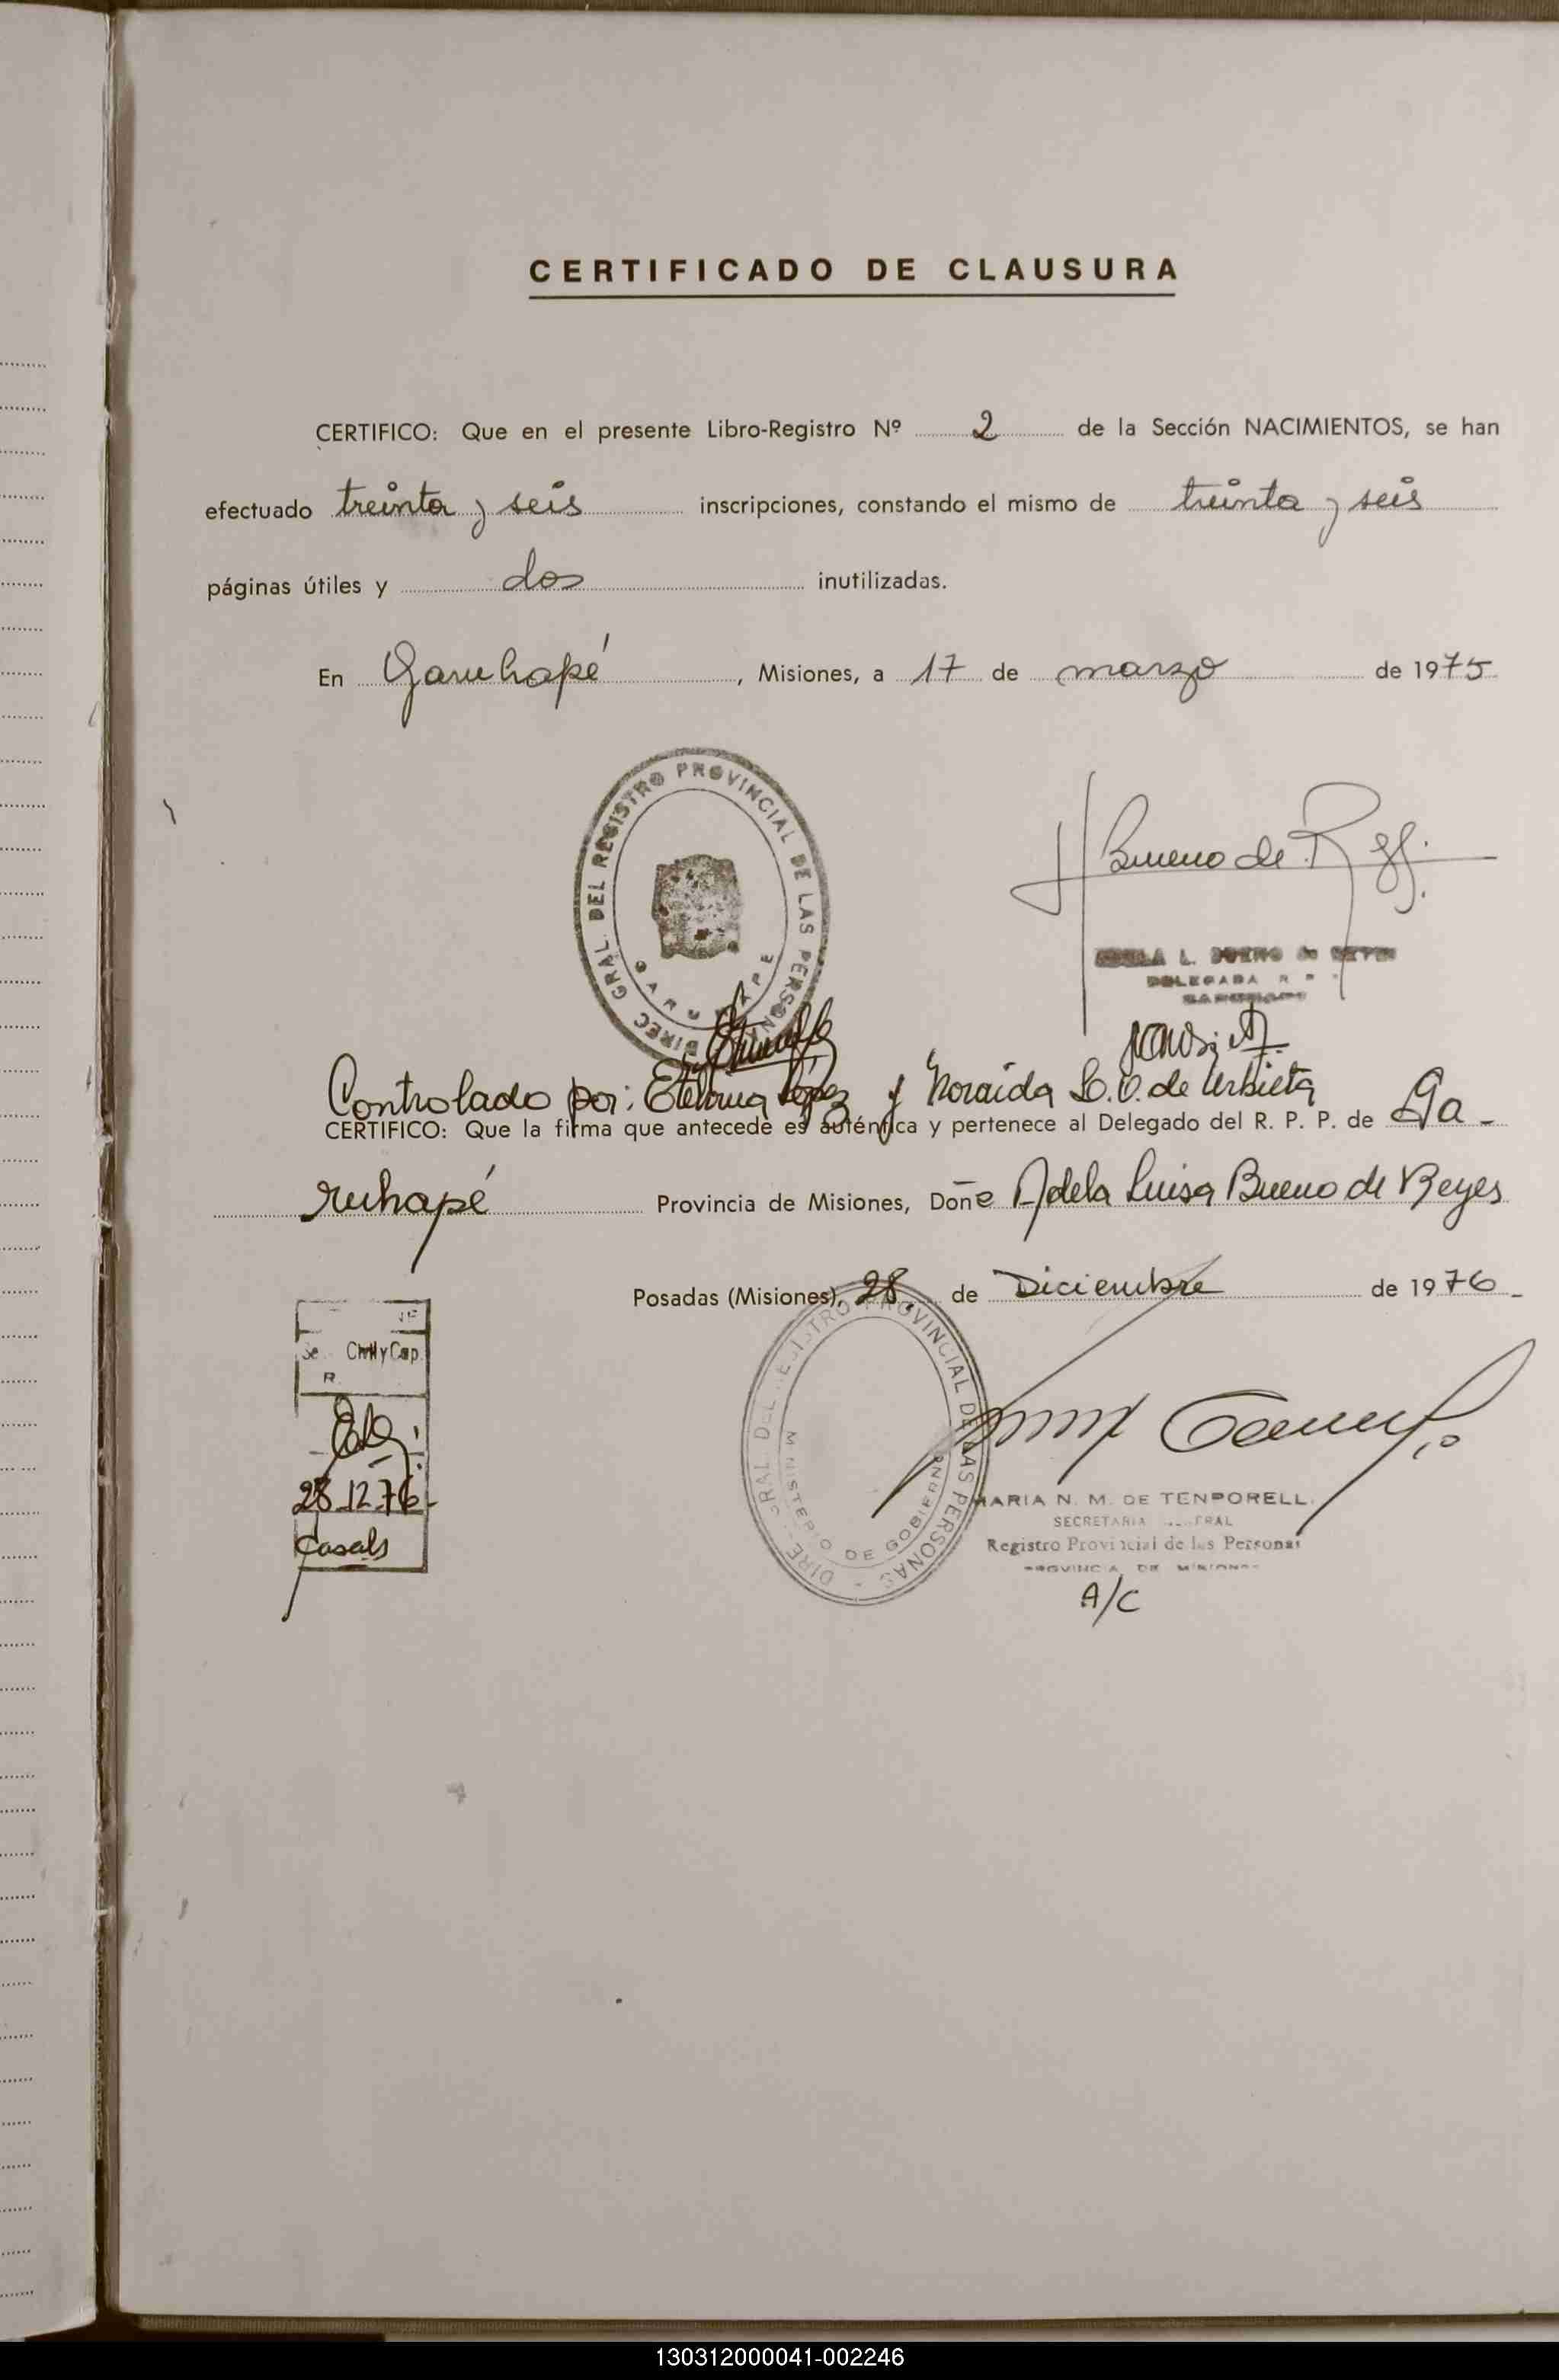 CERTIFICADO DE CLAUSURA
CERTIFICO: Que en el presente Libro-Registro Nº 2 de la Sección NACIMIENTOS, se han
efectuado treinta y seis inscripciones, constando el mismo de treinta y seis
páginas útiles y dos inutilizadas.
En Garuhapé, Misiones, a 17 de marzo de 1975
DIREC GRAL. DEL REGISTRO PROVINCIAL DE LAS PERSONAS
GARUHAPE
Bueno de R
L. BUENO de
DELEGADA R
Controlado por: Etelvina López y Noraida L. O. de Urbieta
CERTIFICO: Que la firma que antecede es auténtica y pertenece al Delegado del R. P. P. de Ga-
ruhapé Provincia de Misiones, Doñe Adela Luisa Bueno de Reyes
Posadas (Misiones), 28 de Diciembre de 1976
Civil y Cap.
R
28.12.76-
Casals
DIREC GRAL DEL REGISTRO PROVINCIAL DE LAS PERSONAS
MINISTERIO DE GOBIERNO
MARIA N. M. DE TENPORELL
SECRETARIA GENERAL
Registro Provincial de las Personas
PROVINCIA DE MISIONES
A/C
130312000041-002246